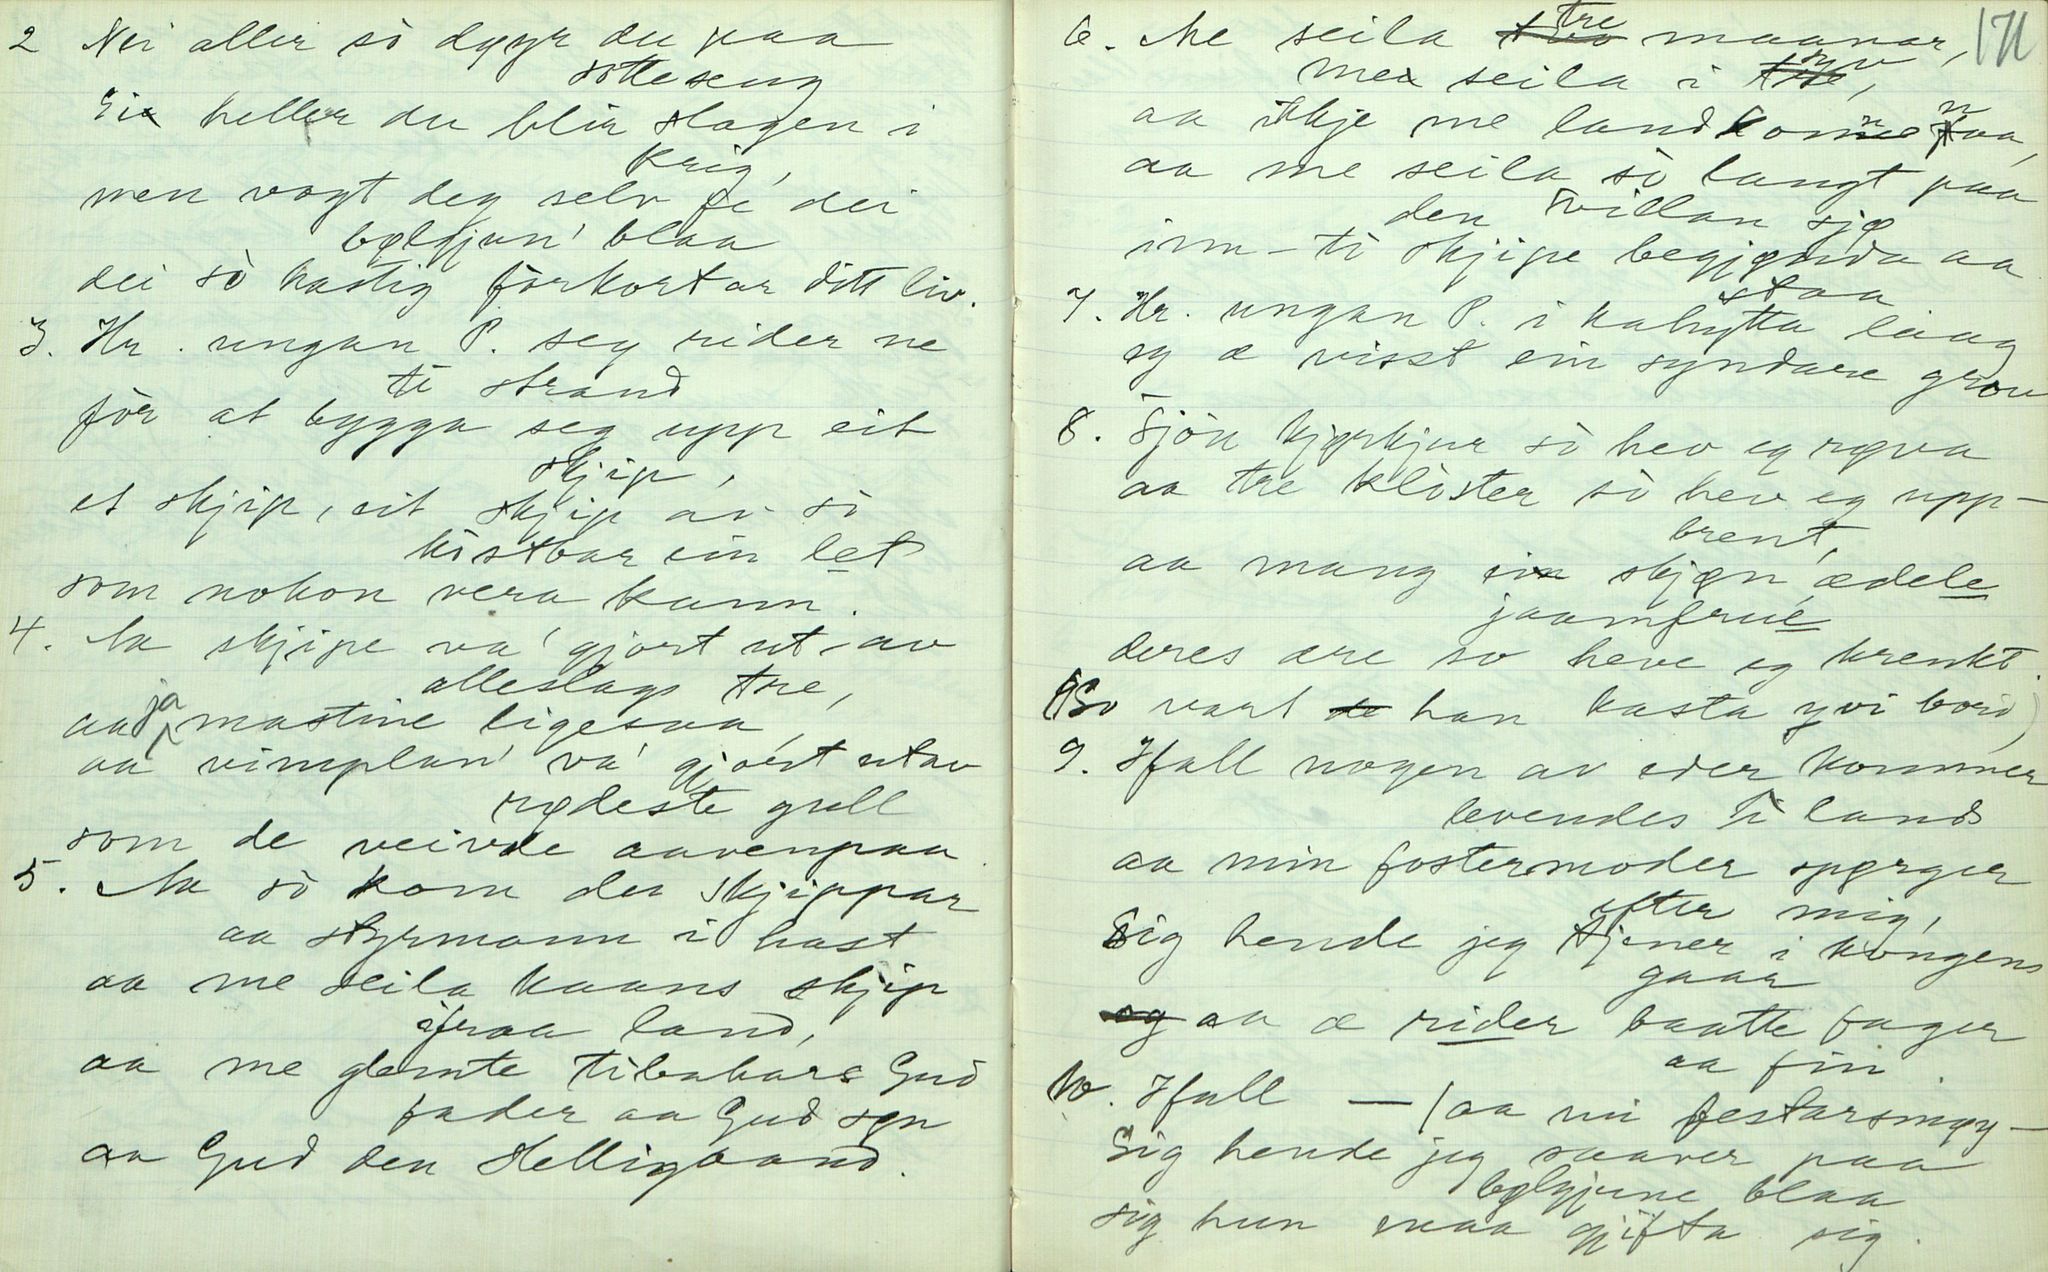 2 Nei aller sò døyr du paa
sòtteseng
Ei heller du blir slagen i
krig,
men vogt deg selv fé dei
bølgjun' blaa
dei sò hastig fòrkortar ditt liv.
3. Hr. ungan P. seg rider ne
ti strand
fòr at bygga seg upp eit
skjip,
et skjip, eit skjip av sò
kòstbar ein let
som nokon vera kann.
4. Aa skjipe va' gjort ut-av
alleslags tre,
aa ja mastine ligesaa,
aa vimplan' va' gjort utav
rødeste gull
som de veivde aavenpaa.
5. Aa sò kom der skjippar
aa styrmann i hast
aa me seila kaans skjip
ifraa land,
aa me glemte tibabars Gud
fader aa Gud søn
aa Gud den Helligaand.
171
6. Me seila tvo tre maanar,
me seila i tre ny,
aa ikkje me land konne naa,
aa me seila sò langt paa
den villan sjø
inn-ti skjipe begjønda aa
staa
7. Hr. ungan P. i kahytta laag
eg æ visst ein syndare grov
8. Sjòu kjørkjur sò hev eg røva
aa tre klòster sò hev eg upp-
brent,
aa mang ein skjøn, ædele
jaamfrue
deres ære so heve eg krenkt.
(So vart de han kasta yvi bord)
9. Ifall nogen av eder kommer
levendes ti land
aa min fostermoder spørger
efter mig,
Sig hende jeg tjener i kongens
gaar
og aa æ rider baatte fager
aa fin.
10. Ifall — (aa mi festarsmøy —
Sig hende jeg saaver paa
bølgjune blaa
sig hun maa gjifta sig.